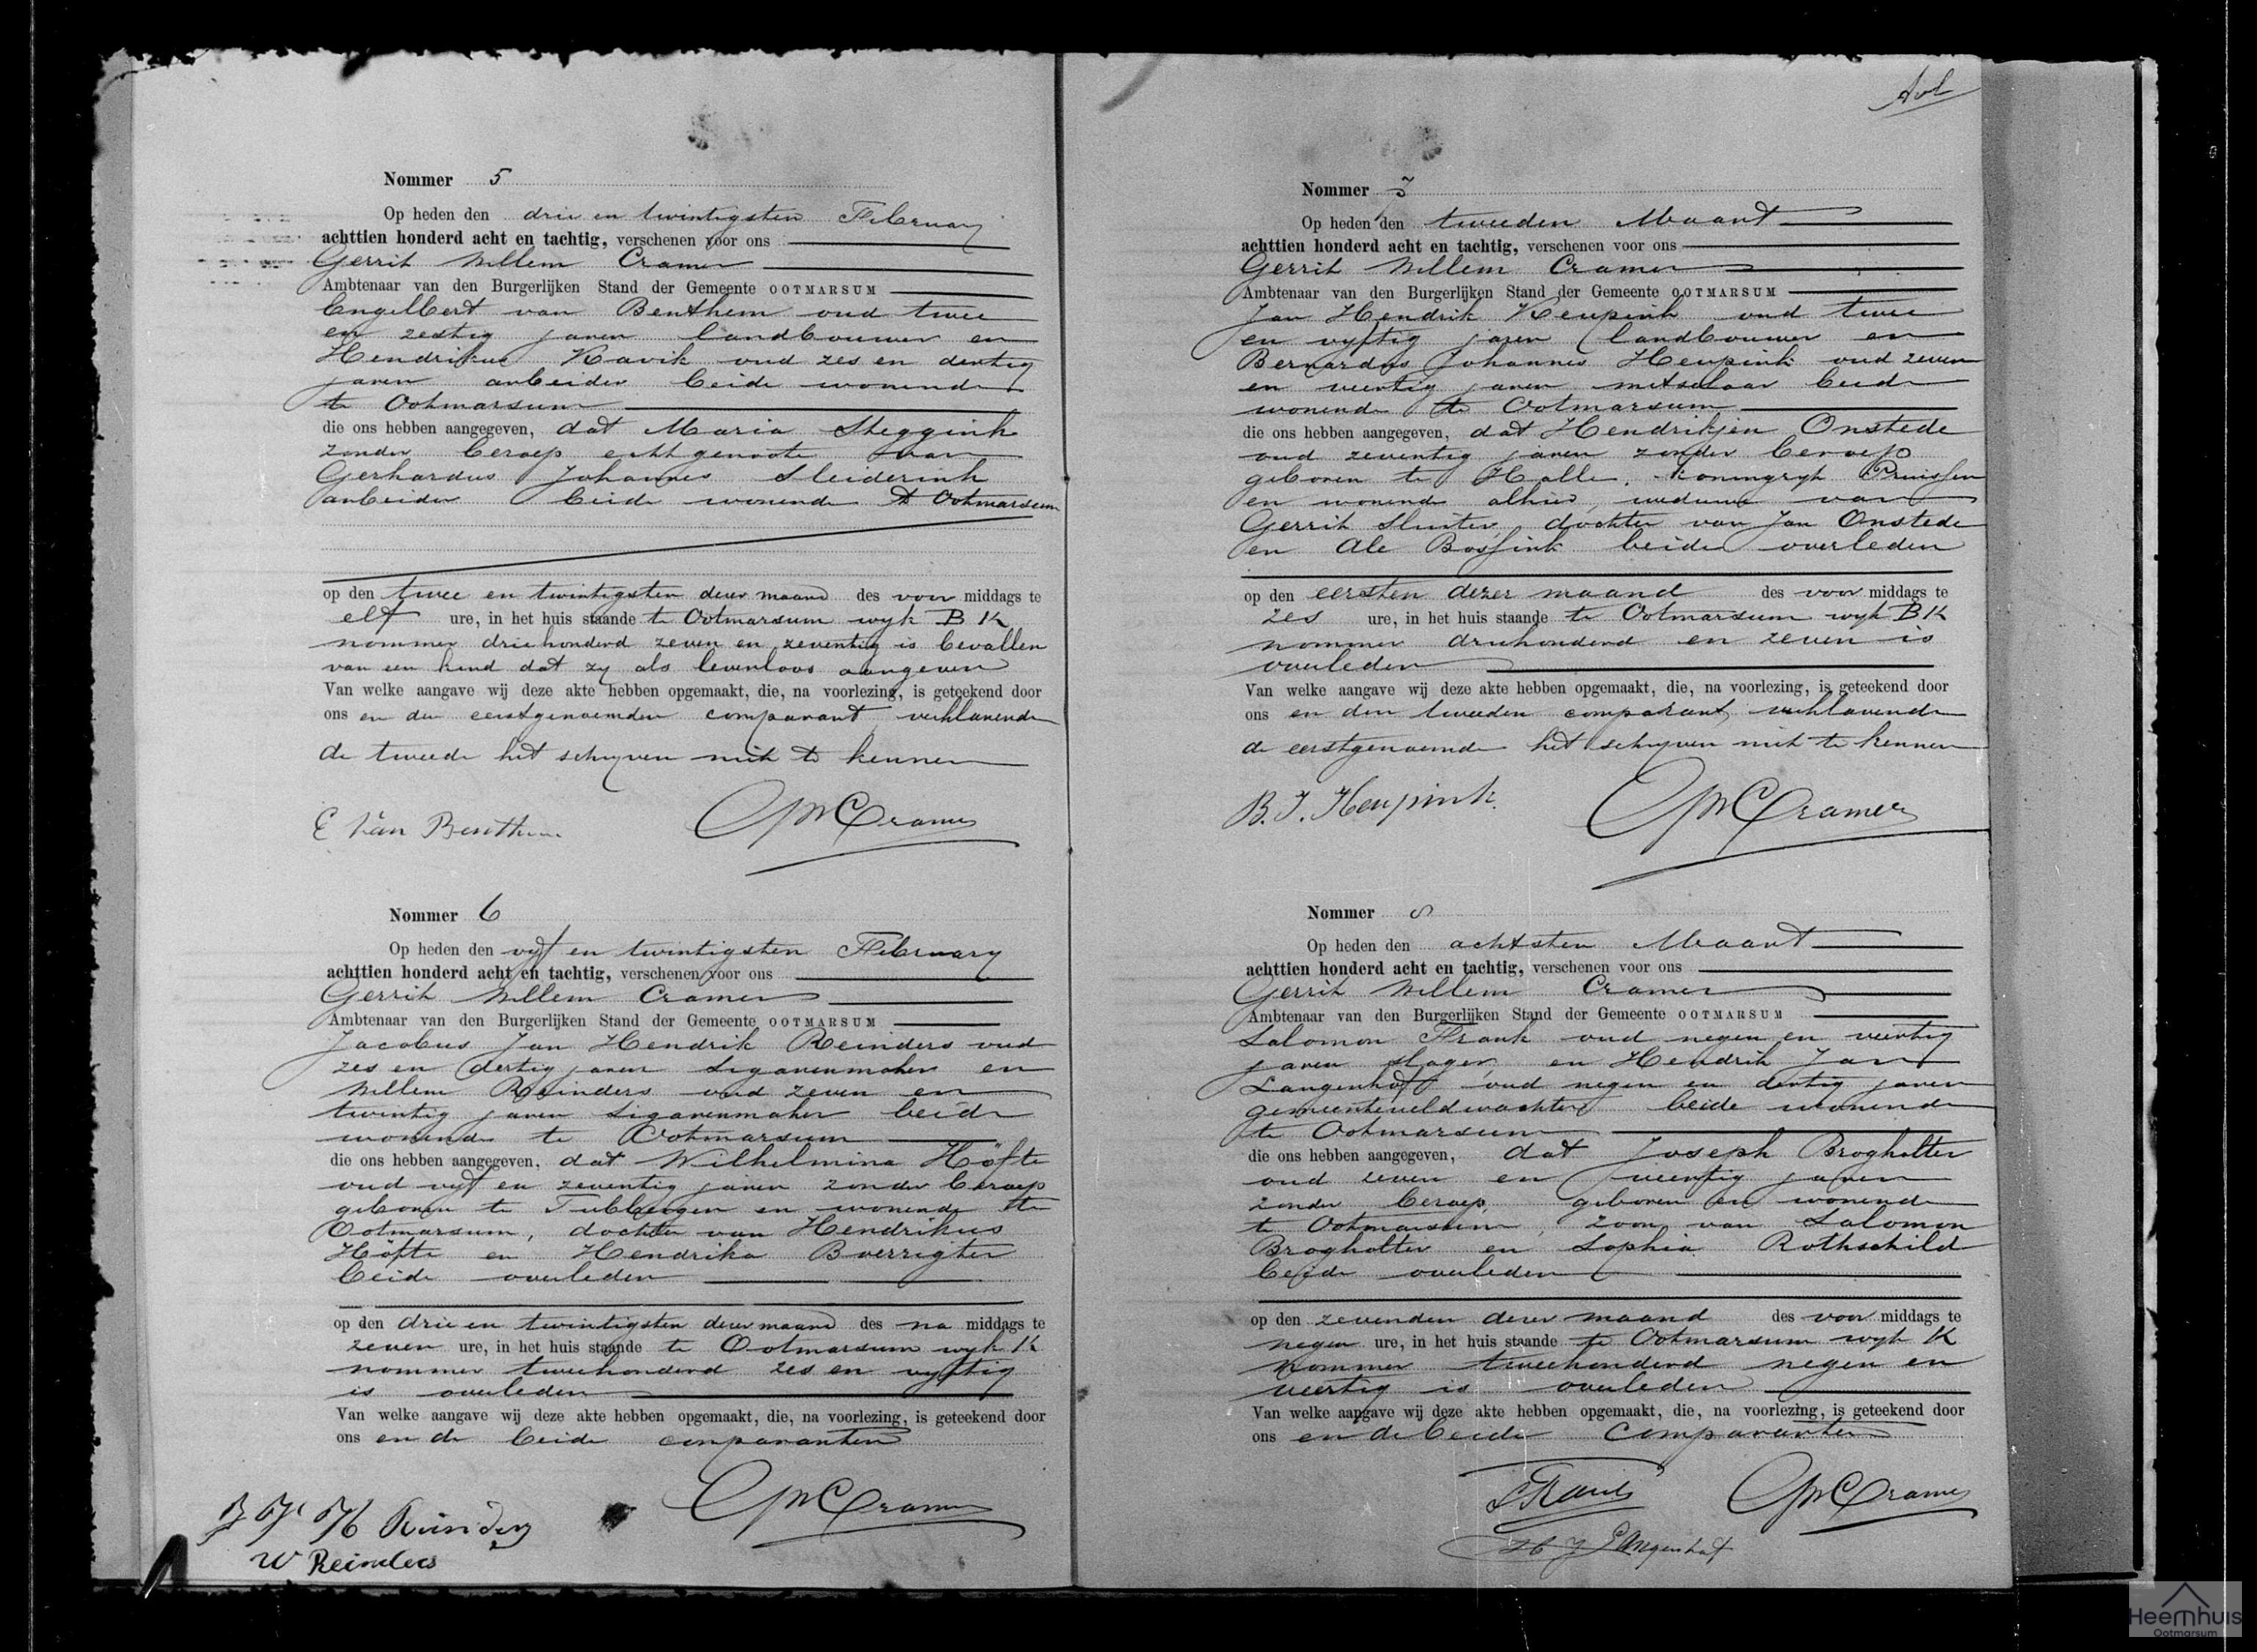 Nommer 5
Op heden den drie en twintigsten February
achttien honderd acht en tachtig, verschenen voor ons
Gerrit Willem Cramer
Ambtenaar van den Burgerlijken Stand der Gemeente OOTMARSUM
Engelbert van Benthem oud twee
en zestig jaren landbouwer en
Hendrikus Kavik oud zes en dertig
jaren arbeider beide wonende
te Ootmarsum
die ons hebben aangegeven, dat Maria Steggink
zonder beroep echtgenoote van
Gerhardus Johannes Sleiderink
arbeider beide wonende te Ootmarsum
op den twee en twintigsten dezer maand des voor middags te
elf ure, in het huis staande te Ootmarsum wyk B K
nommer driehonderd zeven en zeventig is bevallen
van een kind dat zy als levenloos aangeven
Van welke aangave wij deze akte hebben opgemaakt, die, na voorlezing, is geteekend door
ons en den eerstgenoemden comparant, verklarende
de tweede het schryven niet te kennen
E van Benthem
GWCramer
Nommer 6
Op heden den vyf en twintigsten February
achttien honderd acht en tachtig, verschenen voor ons
Gerrit Willem Cramer
Ambtenaar van den Burgerlijken Stand der Gemeente OOTMARSUM
Jacobus Jan Hendrik Reinders oud
zes en dertig jaren sigarenmaker en
Willem Reinders oud zeven en
twintig jaren sigarenmaker beide
wonende te Ootmarsum
die ons hebben aangegeven, dat Wilhelmina Höfte
oud vyf en zeventig jaren zonder beroep
geboren te Tubbergen en wonende te
Ootmarsum, dochter van Hendrikus
Höfte en Hendrika Boerrigter
beide overleden
op den drie en twintigsten dezer maand des na middags te
zeven ure, in het huis staande te Ootmarsum wyk K
nommer tweehonderd zes en vyftig
is overleden
Van welke aangave wij deze akte hebben opgemaakt, die, na voorlezing, is geteekend door
ons en de beide comparanten
GWCramer
J J H Reinders
W Reinders
Nommer 7
Op heden den tweeden Maart
achttien honderd acht en tachtig, verschenen voor ons
Gerrit Willem Cramer
Ambtenaar van den Burgerlijken Stand der Gemeente OOTMARSUM
Jan Hendrik Keupink oud twee
en vyftig jaren landbouwer en
Bernardus Johannes Heupink oud zeven
en veertig jaren metselaar beide
wonende te Ootmarsum
die ons hebben aangegeven, dat Hendrikjen Onstede
oud zeventig jaren zonder beroep
geboren te Halle, koningryk Pruissen
en wonende alhier, weduwe van
Gerrit Sluiter, dochter van Jan Onstede
en Ale Bossink beide overleden
op den eersten dezer maand des voor middags te
zes ure, in het huis staande te Ootmarsum wyk B K
nommer driehonderd en zeven is
overleden
Van welke aangave wij deze akte hebben opgemaakt, die, na voorlezing, is geteekend door
ons en den tweeden comparant, verklarende
de eerstgenoemde het schryven niet te kennen
B. J. Heupink.
GWCramer
Nommer 8
Op heden den achtsten Maart
achttien honderd acht en tachtig, verschenen voor ons
Gerrit Willem Cramer
Ambtenaar van den Burgerlijken Stand der Gemeente OOTMARSUM
Salomon Frank oud negen en veertig
jaren slager, en Hendrik Jan
Langenhoff oud negen en dertig jaren
gemeenteveldwachter beide wonende
te Ootmarsum
die ons hebben aangegeven, dat Joseph Brogholter
oud zeven en veertig jaren
zonder beroep, geboren en wonende
te Ootmarsum, zoon van Salomon
Brogholter en Sophia Rothschild
beide overleden
op den zevenden dezer maand des voor middags te
negen ure, in het huis staande te Ootmarsum wyk K
nommer tweehonderd negen en
veertig is overleden
Van welke aangave wij deze akte hebben opgemaakt, die, na voorlezing, is geteekend door
ons en de beide comparanten
SFrank
GWCramer
H J Langenhof
Heemhuis
Ootmarsum